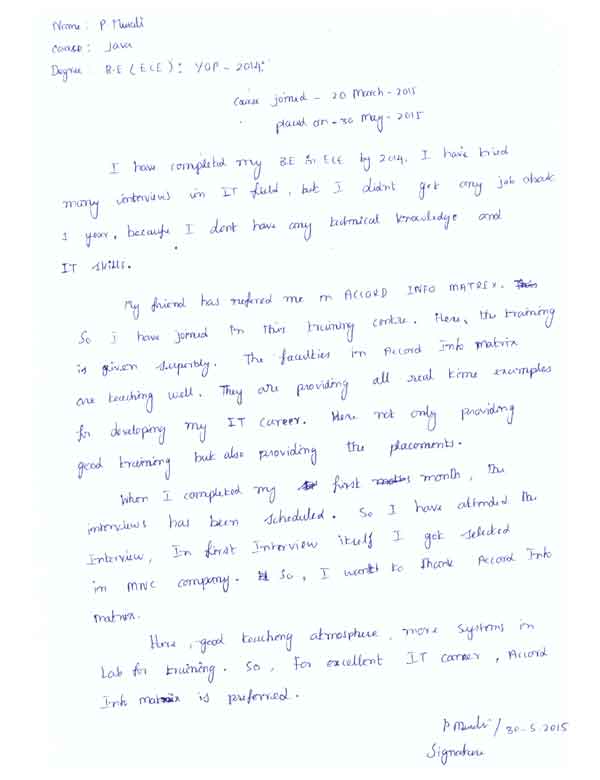 Name : P Murali
Course : Java
Degree : B.E (ECE) : YOP - 2014.
Course joined - 20 March - 2015
placed on - 30 May - 2015
I have completed my B.E in ECE by 2014. I have tried
many interviews in IT field, but I didn't get any job about
1 year, because I dont have any technical knowledge and
IT skills.
My friend has refered me in ACCORD INFO MATRIX.
So i have joined in this training centre. Here, the training
is given superbly. The faculties in Accord Info matrix
are teaching well. They are providing all real time examples
for developing my IT career. Here not only providing
good training but also providing the placements.
When I completed my first month, the
interviews has been scheduled. So I have attended the
Interview, In first Interview itself I got selected
in MNC company. So, I want to thank Accord Info
matrix.
Here, good teaching atmosphere, more systems in
Lab for training. So, For excellent IT career, Accord
Info matrix is preferred.
P Murali / 30-5-2015
Signature